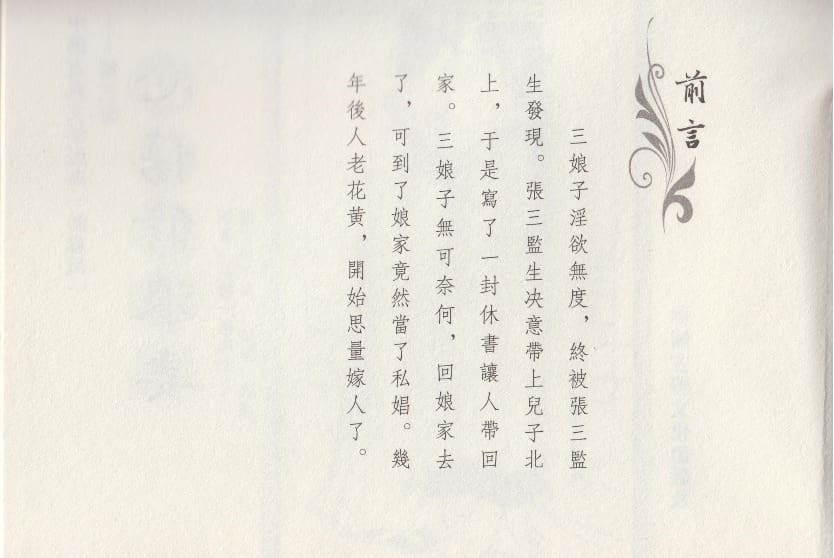 前言
三娘子淫欲無度，終被張三監
生發現。張三監生决意帶上兒子北
上，于是寫了一封休書讓人帶回
家。三娘子無可奈何，回娘家去
了，可到了娘家竟然當了私娼。幾
年後人老花黄，開始思量嫁人了。